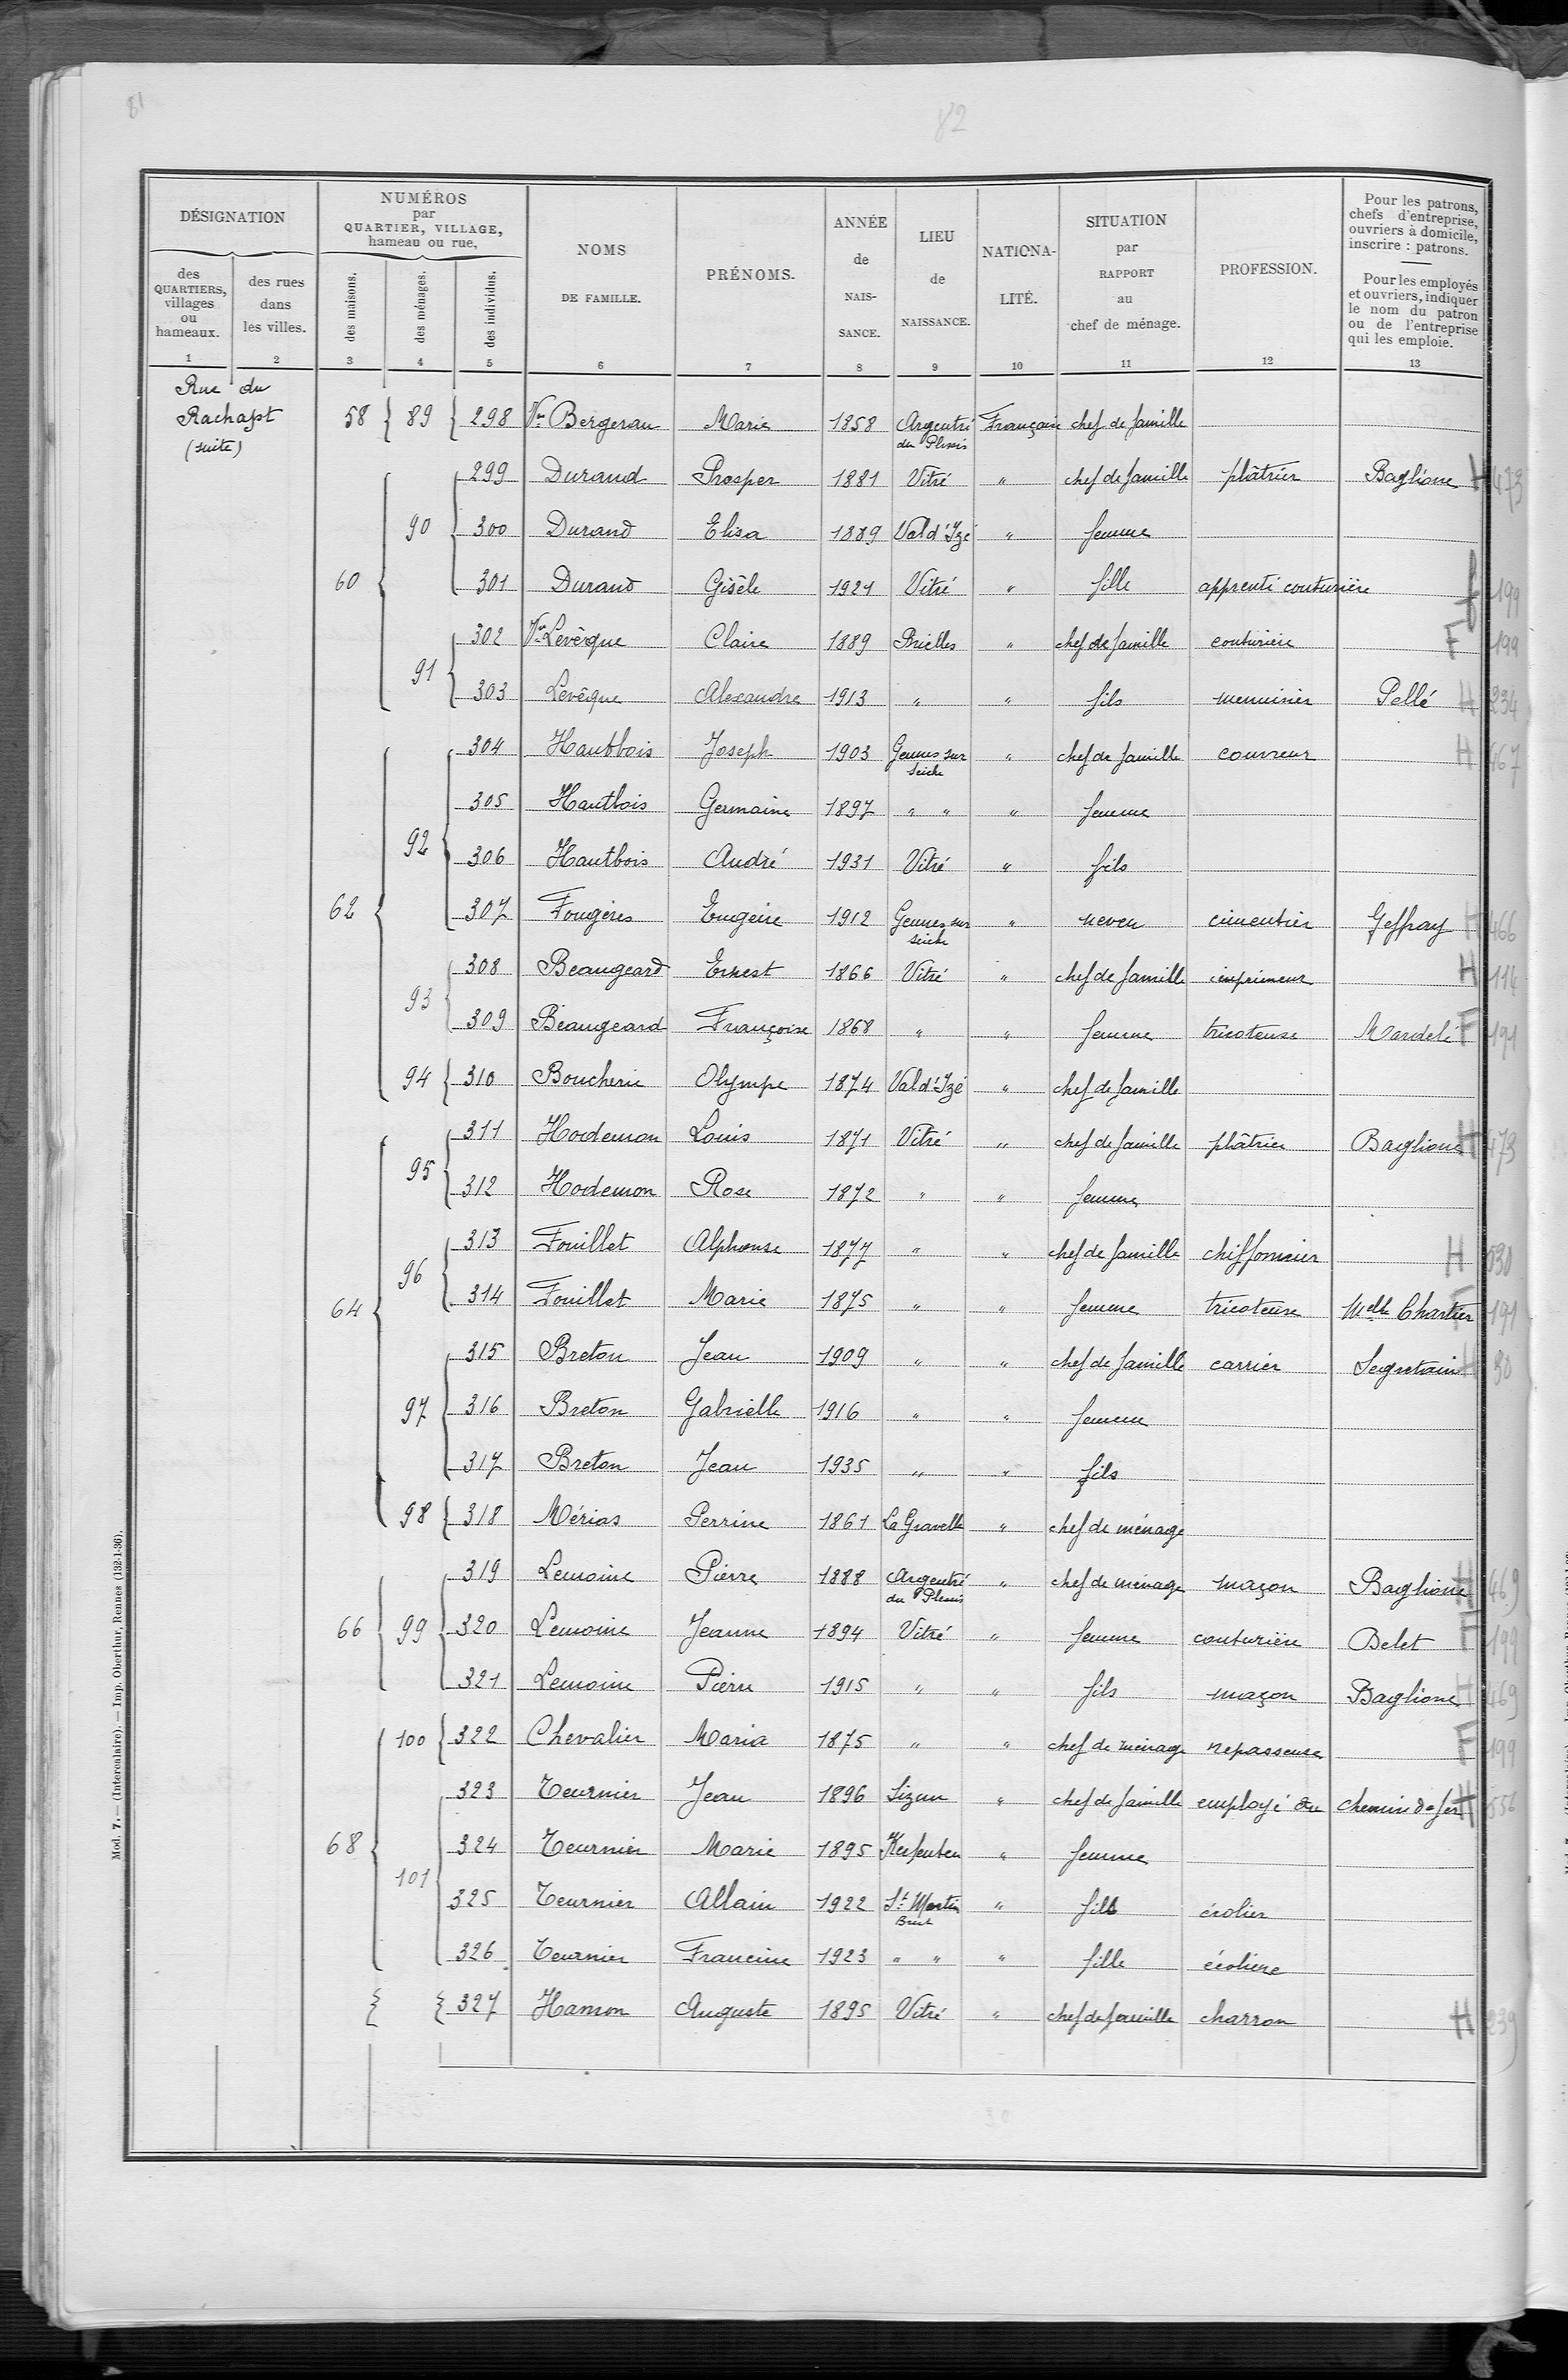 81
82
DÉSIGNATION
des QUARTIERS, villages ou hameaux.
des rues dans les villes.
NUMÉROS par QUARTIER, VILLAGE, hameau ou rue.
des maisons.
des ménages.
des individus.
NOMS DE FAMILLE.
PRÉNOMS.
ANNÉE de NAIS- SANCE.
LIEU de NAISSANCE.
NATIONA- LITÉ.
SITUATION par RAPPORT au chef de ménage.
PROFESSION.
Pour les patrons, chefs d'entreprise, ouvriers à domicile, inscrire : patrons.
Pour les employés et ouvriers, indiquer le nom du patron ou de l'entreprise qui les emploie.
1 2 3 4 5 6 7 8 9 10 11 12 13
Rue du
Rachapt
(suite)
58 89 298 Vve Bergerau Marie 1858 Argentré du Plessis Française chef de famille
299 Durand Prosper 1881 Vitré " chef de famille plâtrier Baglione H 473
90 300 Durand Elisa 1889 Val d'Izé " femme
60 301 Durand Gisèle 1921 Vitré " fille apprenti couturière F 199
302 Vve Levêque Claire 1889 Brielles " chef de famille couturière F 199
91 303 Levêque Alexandre 1913 " " fils menuisier Pellé H 234
304 Hautbois Joseph 1903 Gennes sur Seiche " chef de famille couvreur H 467
305 Hautbois Germaine 1897 " " " femme
92 306 Hautbois André 1931 Vitré " fils
62 307 Fougères Eugène 1912 Gennes sur Seiche " neveu cimentier Geffray H 466
308 Beaugeard Ernest 1866 Vitré " chef de famille imprimeur H 114
93 309 Beaugeard Françoise 1868 " " femme tricoteuse Mardelé F 191
94 310 Boucherie Olympe 1874 Val d'Izé " chef de famille
311 Hodemon Louis 1871 Vitré " chef de famille plâtrier Baglione H 473
95 312 Hodemon Rose 1872 " " femme
313 Fouillet Alphonse 1877 " " chef de famille chiffonnier H 530
96 314 Fouillet Marie 1875 " " femme tricoteuse Melle Chartier F 191
64 315 Breton Jean 1909 " " chef de famille carrier Segretain H 30
97 316 Breton Gabrielle 1916 " " femme
317 Breton Jean 1935 " " fils
98 318 Mérias Perrine 1861 La Gravelle " chef de ménage
319 Lemoine Pierre 1888 Argentré du Plessis " chef de ménage maçon Baglione H 469
66 99 320 Lemoine Jeanne 1894 Vitré " femme couturière Belet F 199
321 Lemoine Pierre 1915 " " fils maçon Baglione H 469
100 322 Chevalier Maria 1875 " " chef de ménage repasseuse F 199
323 Teurnier Jean 1896 Sizun " chef de famille employé du chemin de fer H 556
68 324 Teurnier Marie 1895 Kerfeuten " femme
101 325 Teurnier Allain 1922 St Martin Brest " fils écolier
326 Teurnier Francine 1923 " " " fille écolière
327 Hamon Auguste 1895 Vitré " chef de famille charron H 239
Mod. 7. — (Intercalaire). — Imp. Oberthur, Rennes (132-1-36).